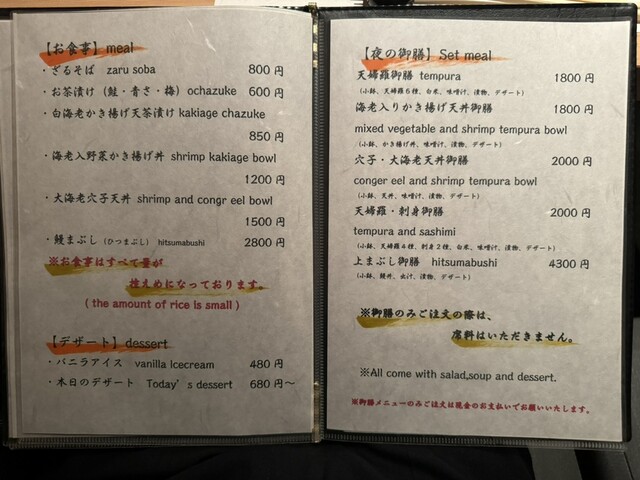 【お食事】meal
・ざるそば zaru soba 800円
・お茶漬け（鮭・青さ・梅）ochazuke 600円
・白海老かき揚げ天茶漬け kakiage chazuke
850円
・海老入野菜かき揚げ丼 shrimp kakiage bowl
1200円
・大海老穴子天丼 shrimp and congr eel bowl
1500円
・鰻まぶし（ひつまぶし）hitsumabushi 2800円
※お食事はすべて量が
控えめになっております。
( the amount of rice is small )
【デザート】dessert
・バニラアイス vanilla Icecream 480円
・本日のデザート Today's dessert 680円～
【夜の御膳】Set meal
天婦羅御膳 tempura 1800円
（小鉢、天婦羅6種、白米、味噌汁、漬物、デザート）
海老入りかき揚げ天丼御膳 1800円
mixed vegetable and shrimp tempura bowl
（小鉢、かき揚げ丼、味噌汁、漬物、デザート）
穴子・大海老天丼御膳 2000円
conger eel and shrimp tempura bowl
（小鉢、天丼、味噌汁、漬物、デザート）
天婦羅・刺身御膳 2000円
tempura and sashimi
（小鉢、天婦羅4種、刺身2種、白米、味噌汁、漬物、デザート）
上まぶし御膳 hitsumabushi 4300円
（小鉢、鰻丼、出汁、漬物、デザート）
※御膳のみご注文の際は、
席料はいただきません。
※All come with salad,soup and dessert.
※御膳メニューのみご注文は現金のお支払いでお願いいたします。